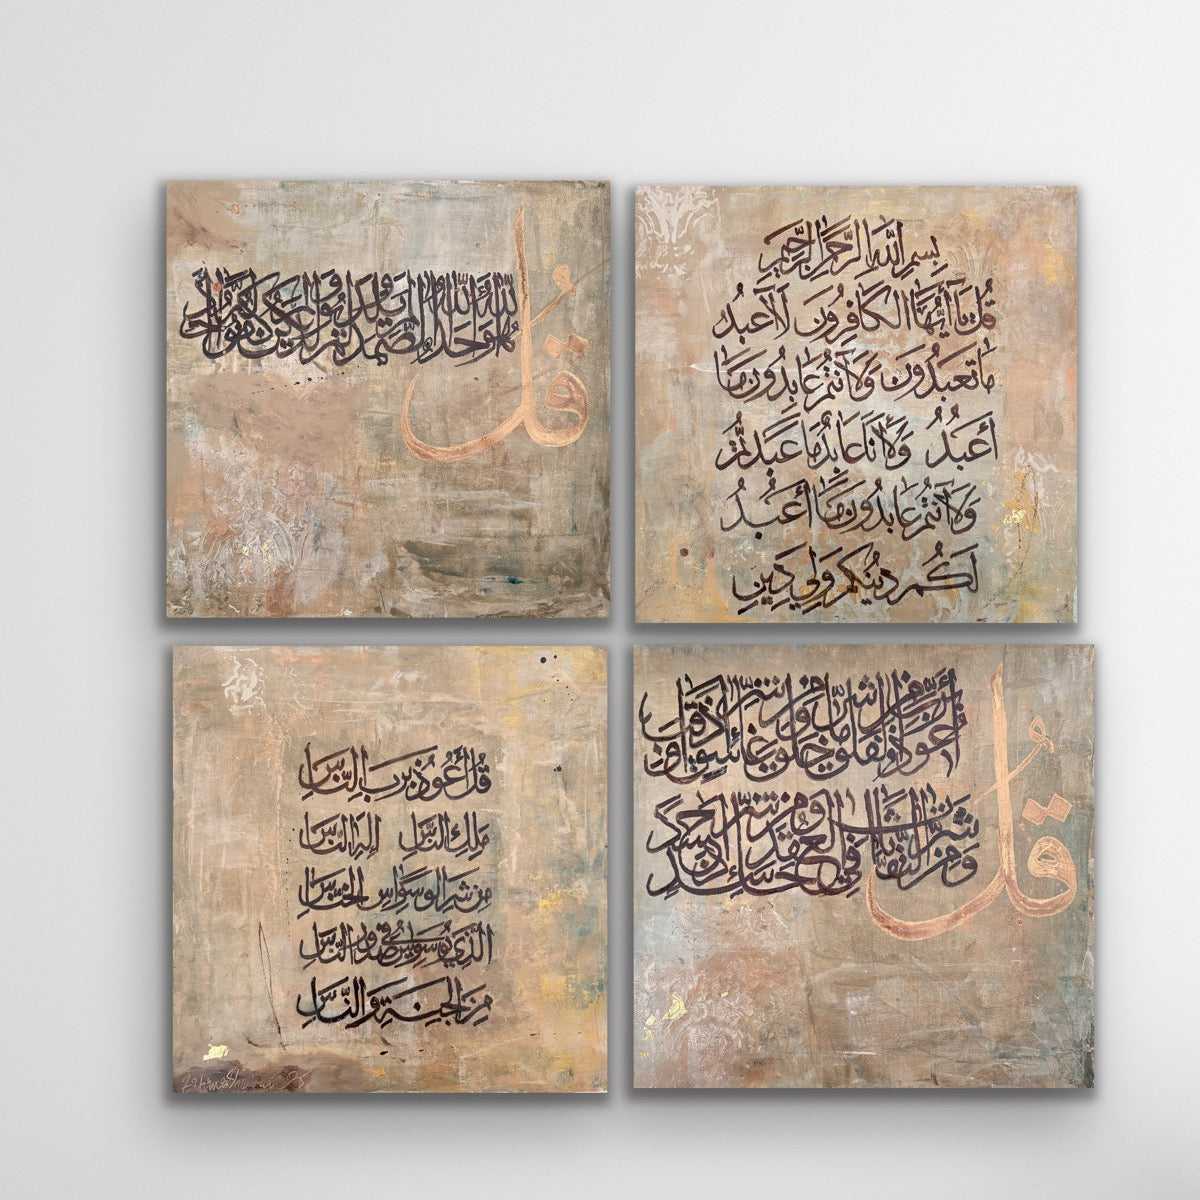 قُل
هُوَ اللّٰهُ أَحَدٌ اللّٰهُ الصَّمَد لَم يَلِد وَلَم يُولَد وَلَم يَكُن لَّهُ كُفُوًا أَحَد
بِسمِ اللَّهِ الرَّحمٰنِ الرَّحِيمِ
قُل يَا أَيُّهَا الكَافِرُونَ لَا أَعبُدُ
مَا تَعبُدُون وَلَا أَنتُم عَابِدُونَ مَا
أَعبُدُ وَلَا أَنَا عَابِدٌ مَا عَبَدتُّم
وَلَا أَنتُم عَابِدُونَ مَا أَعبُدُ
لَكُم دِينُكُم وَلِيَ دِينِ
قُل أَعُوذُ بِرَبِ النَّاسِ
مَلِكِ النَّاسِ إِلٰهِ النَّاسِ
مِن شَرِ الوَسوَاسِ الخَنَّاسِ
الَّذِي يُوَسوِسُ فِي صُدُورِ النَّاسِ
مِنَ الجِنَةِ وَالنَّاسِ
قُل
أَعُوذُ بِرَبِّ الفَلَقِ مِن شَرِّ مَا خَلَقَ وَمِن شَرِّ غَاسِقٍ إِذَا وَقَبَ
وَمِن شَرِّ النَّفَّاثَاتِ فِي العُقَدِ وَمِن شَرِّ حَاسِدٍ إِذَا حَسَدَ